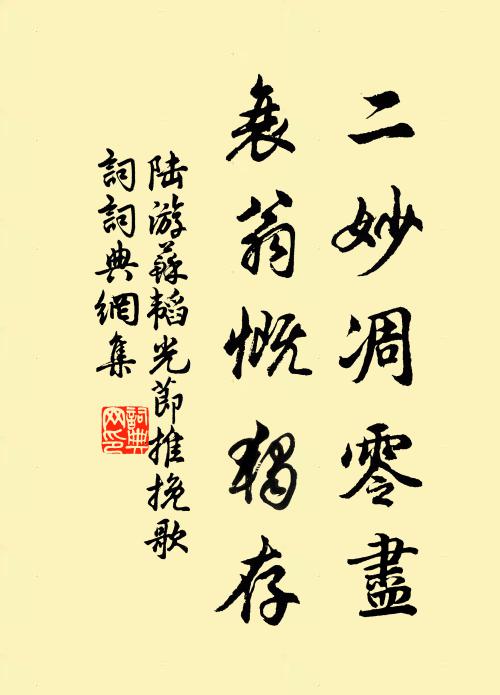 二妙凋零盡
衰翁慨獨存
陸游蘇韜光節推挽歌
詞詞典網集
詞典网印